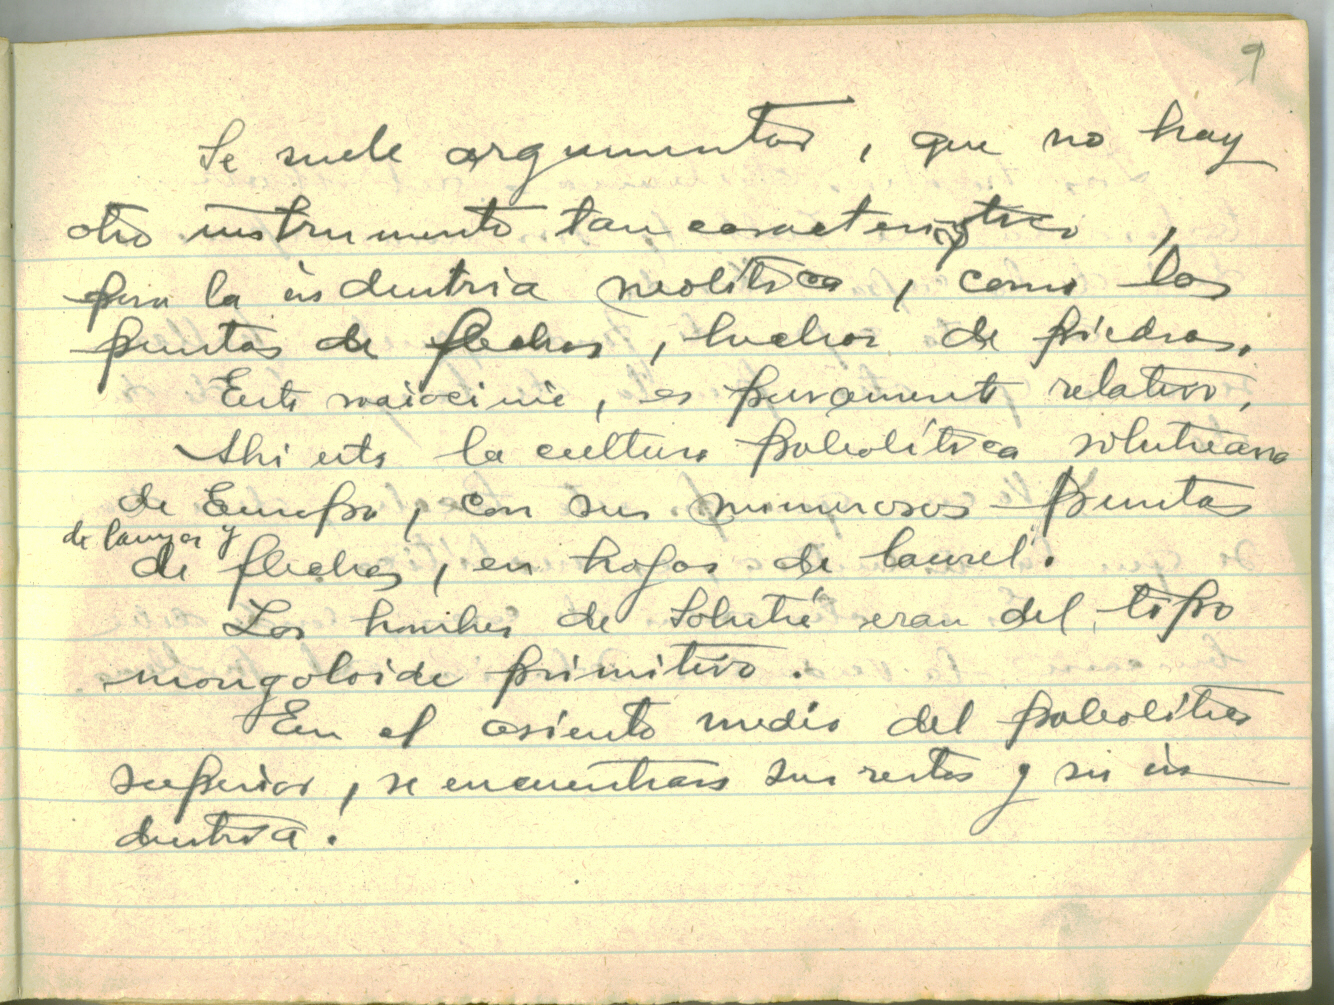 9
Se suele argumentar, que no hay
otro instrumento tan caracteristico,
para la industria neolítica, como las
puntas de flechas, hechas de piedras.
Este raciocinio, es puramente relativo,
Ahi esta la cultura paleolítica solutreana
de Europa, con sus numerosos puntas
de lanzas y
de flechas, en hojas de laurel".
Los hombres de Solutré eran del tipo
mongoloide primitivo.
En el asiento medio del paleolitico
superior, se encuentran sus restos y su in
dustria.